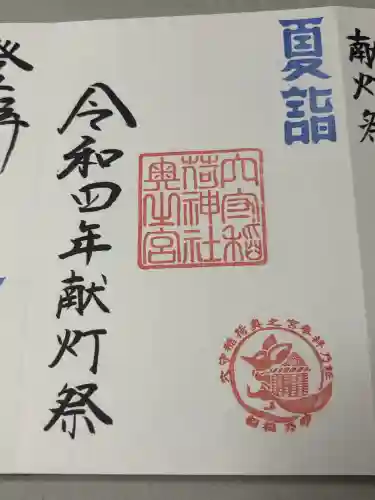 献灯祭
夏詣
穴守稲
荷神社
奥之宮
令和四年献灯祭
登拝